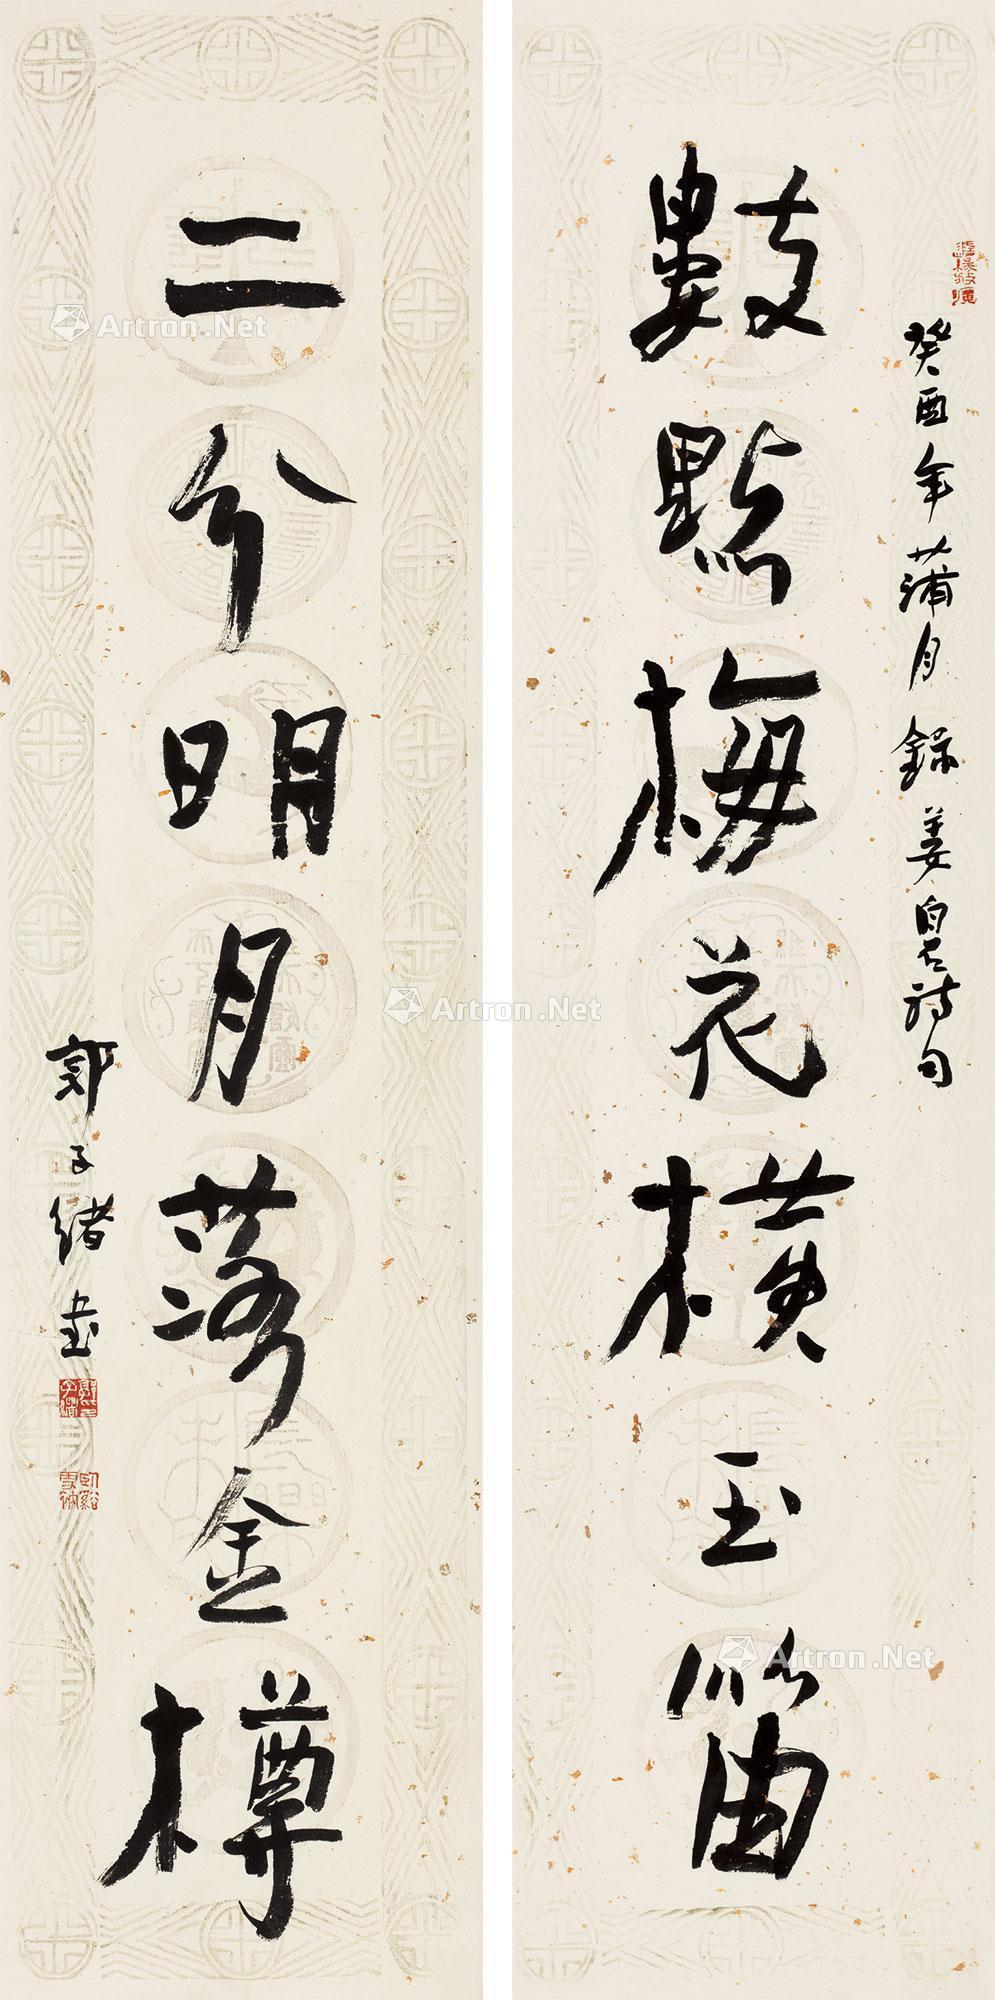 癸酉年蒲月錄姜白石詩句
數點梅花橫玉笛
二分明月落金樽
郭子緒書
Artron.Net
Artron.Net
Artron.Net